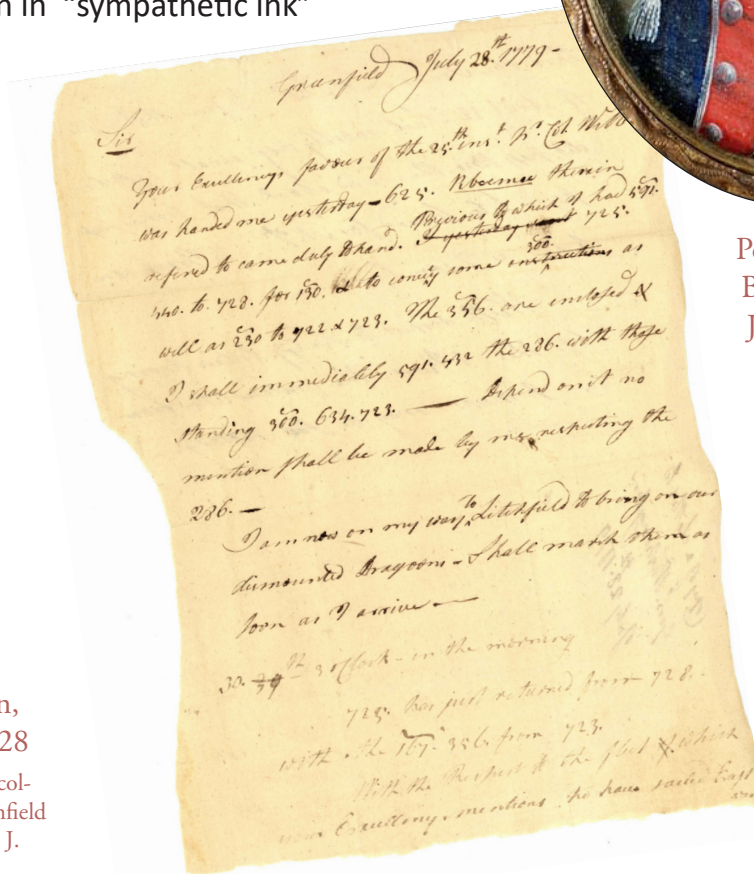 n in "sympathetic ink"
Greenfield July 28.th 1779-
Sir
Your Excellencys favour of the 25.th ins.t Pr. Col. Webb
was handed me yesterday - 625. therein
refered to came duly to hand. I yesterday Previous to which I had 591.
to 728. for 150. & to convey some instructions 300. 725. as
well as 230 to 722 & 723. The 356. are inclosed &
I shall immediately 591. 432 the 286. with those
standing 360. 634. 723. — Depend on it no
mention shall be made by me respecting the
286. —
I am now on my way to Litchfield to bring on our
dismounted Dragoons - Shall march them as
soon as I arrive —
30. 29 th 3 oClock - in the morning
725. has just returned from 728.
with the 167. 356. from 723.
With the Respect to the fleet which
your Excellency mentions to have sailed East
P
B
J
n,
28
col-
nfield
J.